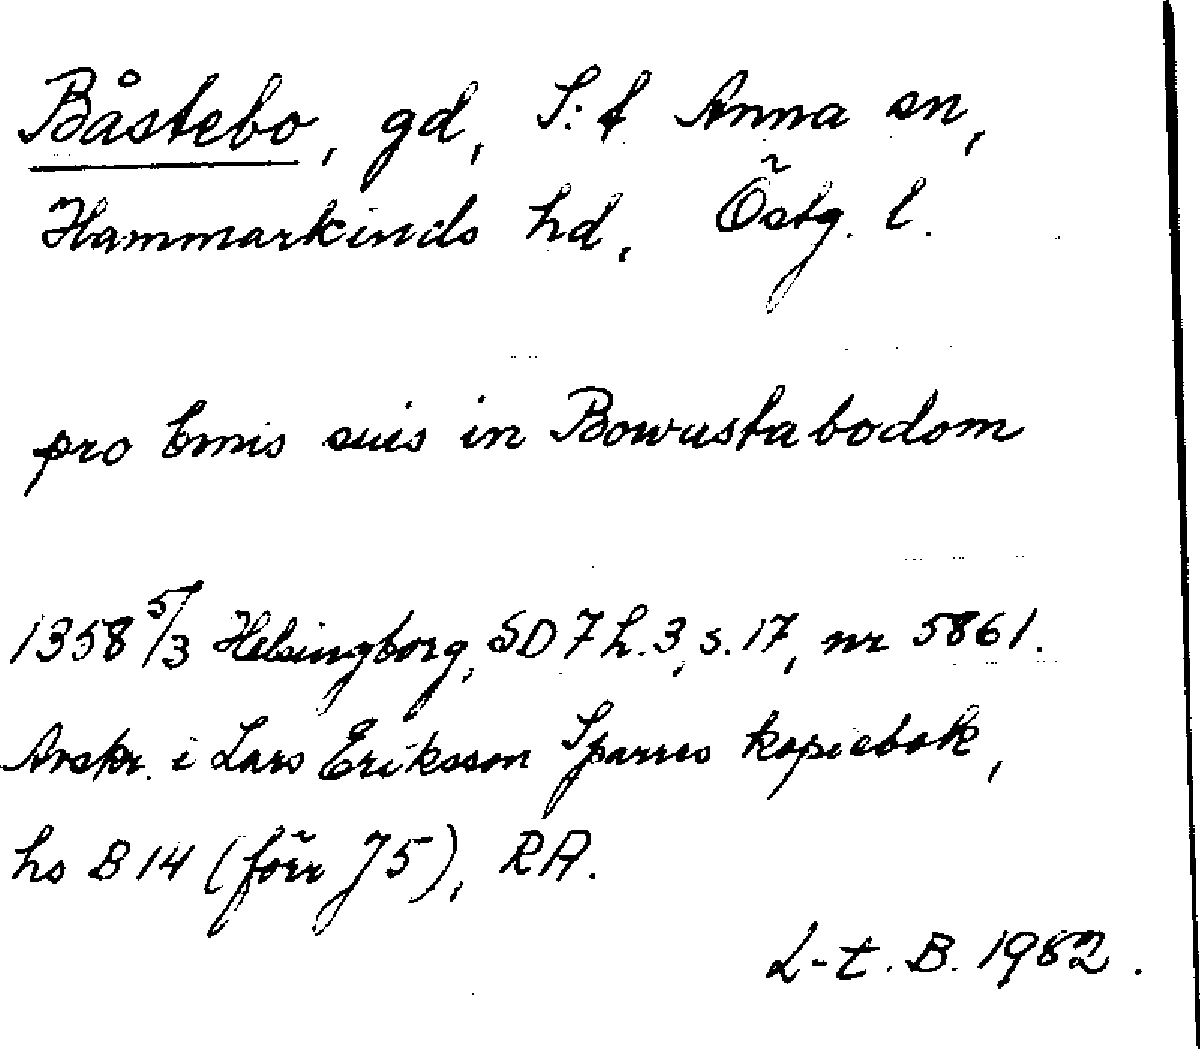 Båstebo, gd, S:t Anna sn,
Hammarkinds hd, Östg. l.
pro bonis suis in Bowustabodom
1358 5/3 Helsingborg, SD 7 h. 3, s. 17, nr 5861.
Avskr. i Lars Eriksson Sparres kopiebok,
hs B 14 (förr J 5), RA.
L-t. B. 1962.